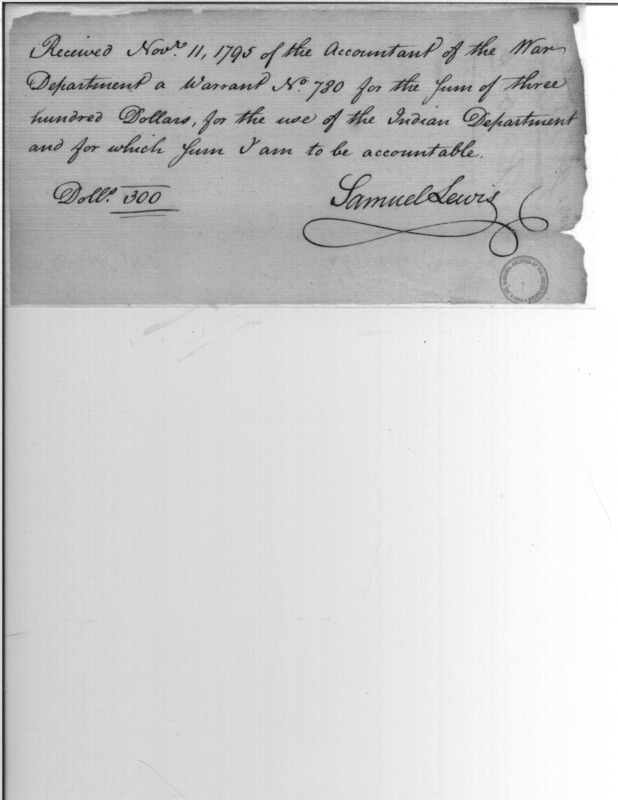 Received Novr. 11, 1795 of the Accountant of the War
Department a Warrant No. 780 for the Sum of three
hundred Dollars, for the use of the Indian Department
and for which Sum I am to be accountable.
Dolls. 300
Samuel Lewis